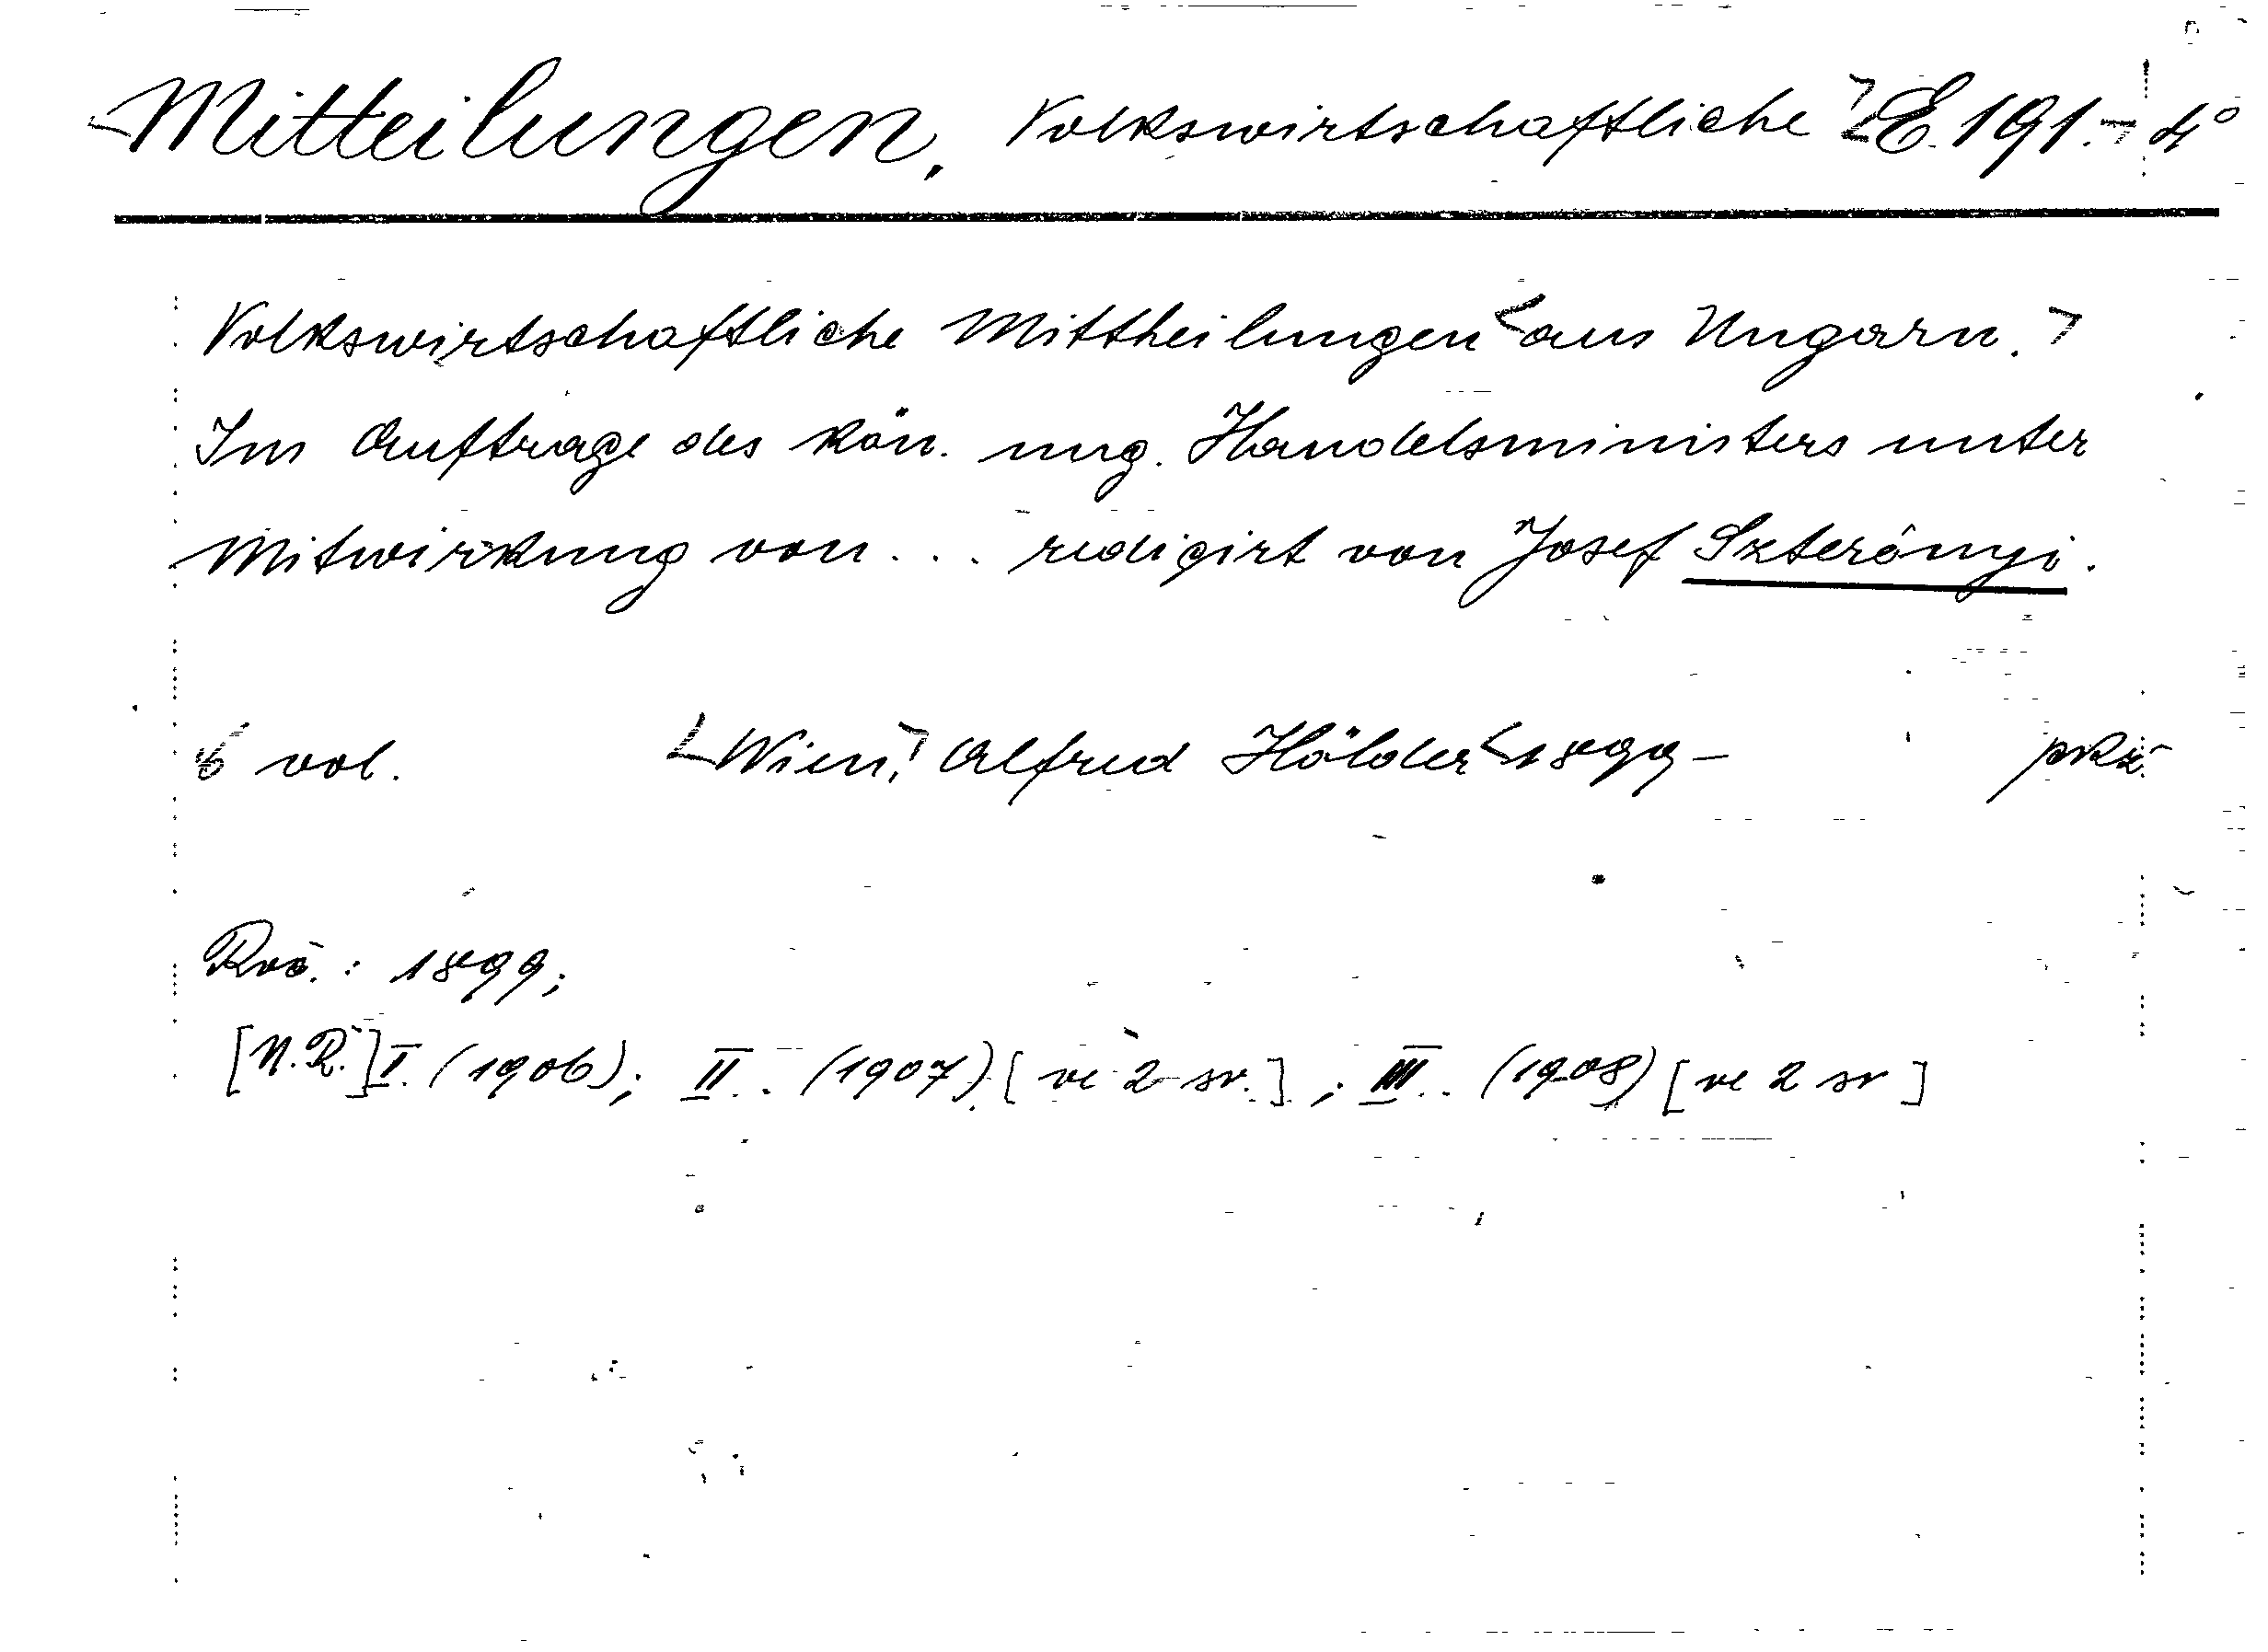 Mitteilungen, Volkswirtschaftliche E. 191. 4°
Volkswirtschaftliche Mittheilungen aus Ungarn.
Im Auftrage des kön. ung. Handelsministers unter
Mitwirkung von... redigirt von Josef Szterényi.
vol. Wien, Alfred Hölder 1899 –
Roč.: 1899;
[N.R.] I. (1906); II.. (1907) [ve 2 sv.]; III.. (1908) [ve 2 sv]